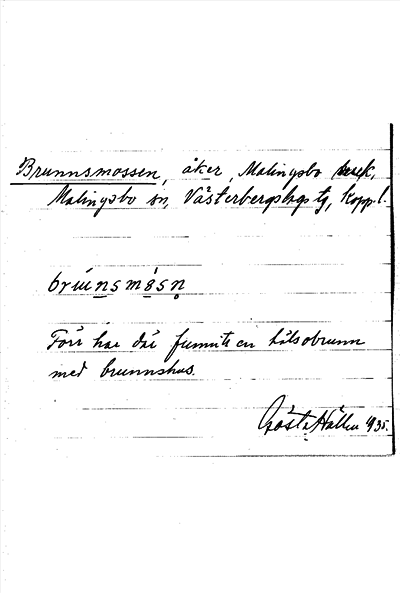 Brunnsmossen, åker, Malingsbo bruk,
Malingsbo sn, Västerbergslags tg, Kopp. l.
brúnsmå̀sn̥
Förr har där funnits en hälsobrunn
med brunnshus.
Gösta Hallén 1935.